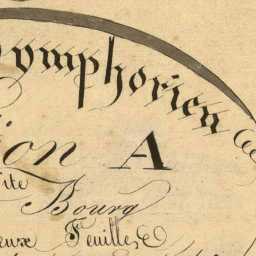 ymphorien
ion A
ite
Bourg
eux Feuilles